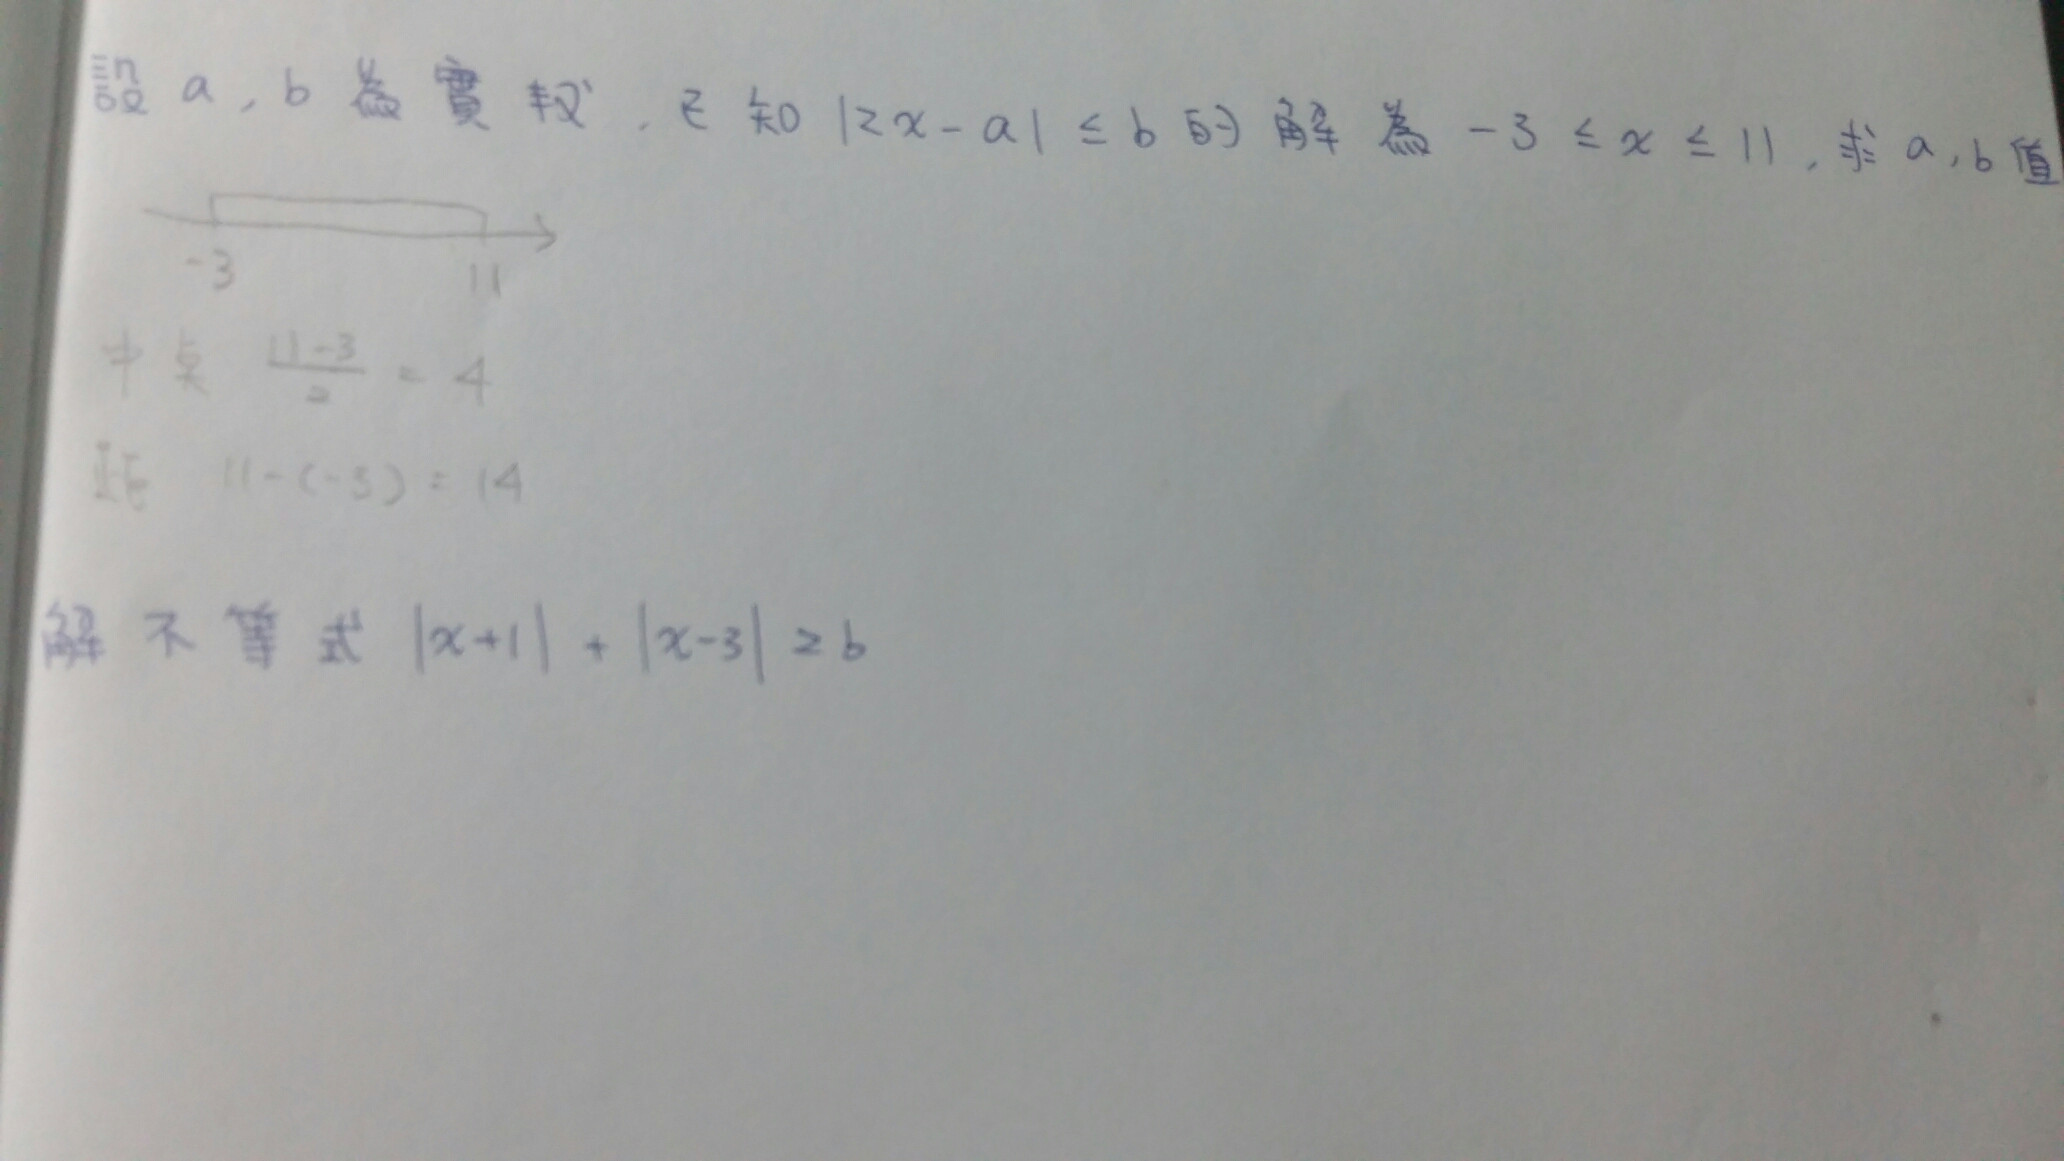 設 a, b 為實數, 已知 |2x-a| ≤ b 的解為 -3 ≤ x ≤ 11, 求 a, b 值
-3 11
中點 \frac{11-3}{2} = 4
距 11-(-3) = 14
解不等式 |x+1| + |x-3| ≥ b